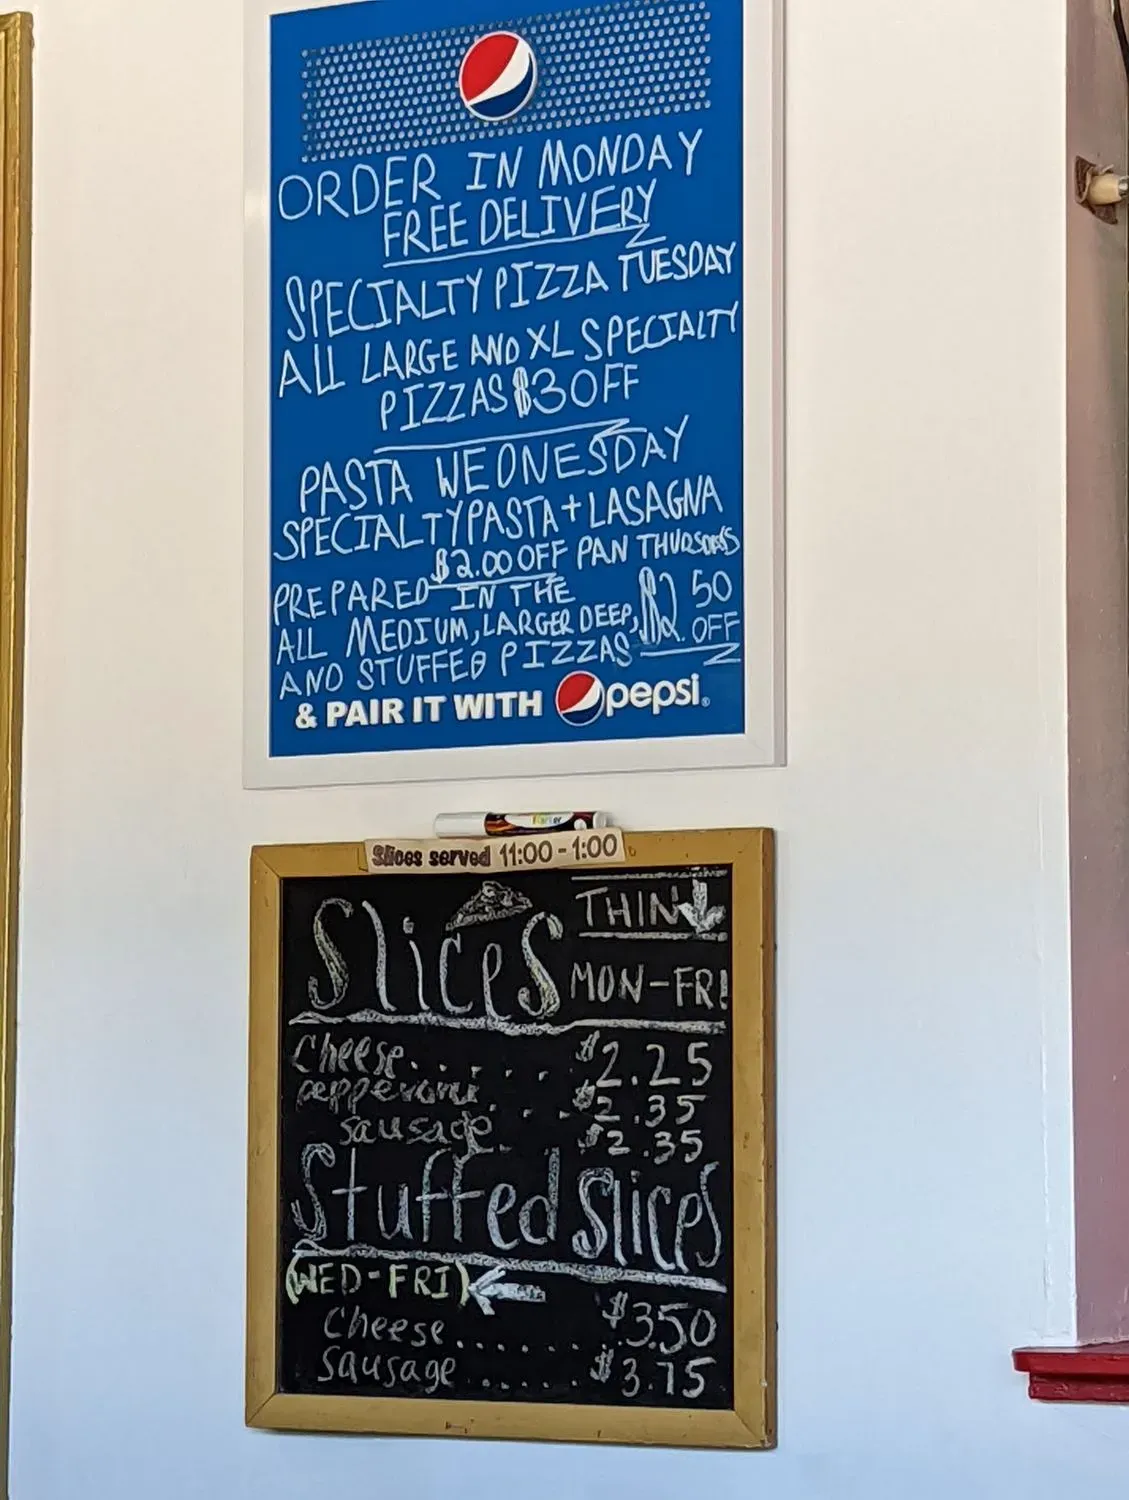 ORDER IN MONDAY
FREE DELIVERY
SPECIALTY PIZZA TUESDAY
ALL LARGE AND XL SPECIALTY
PIZZAS $3 OFF
PASTA WEDNESDAY
SPECIALTY PASTA + LASAGNA
$2.00 OFF PAN THURSDAYS
PREPARED IN THE
ALL MEDIUM, LARGER DEEP, $2.50
AND STUFFED PIZZAS OFF
& PAIR IT WITH pepsi®
Slices served 11:00 - 1:00
THIN
Slices MON-FRI
Cheese...... $2.25
pepperoni $2.35
sausage... $2.35
Stuffed Slices
(WED-FRI)
Cheese....... $3.50
Sausage...... $3.75